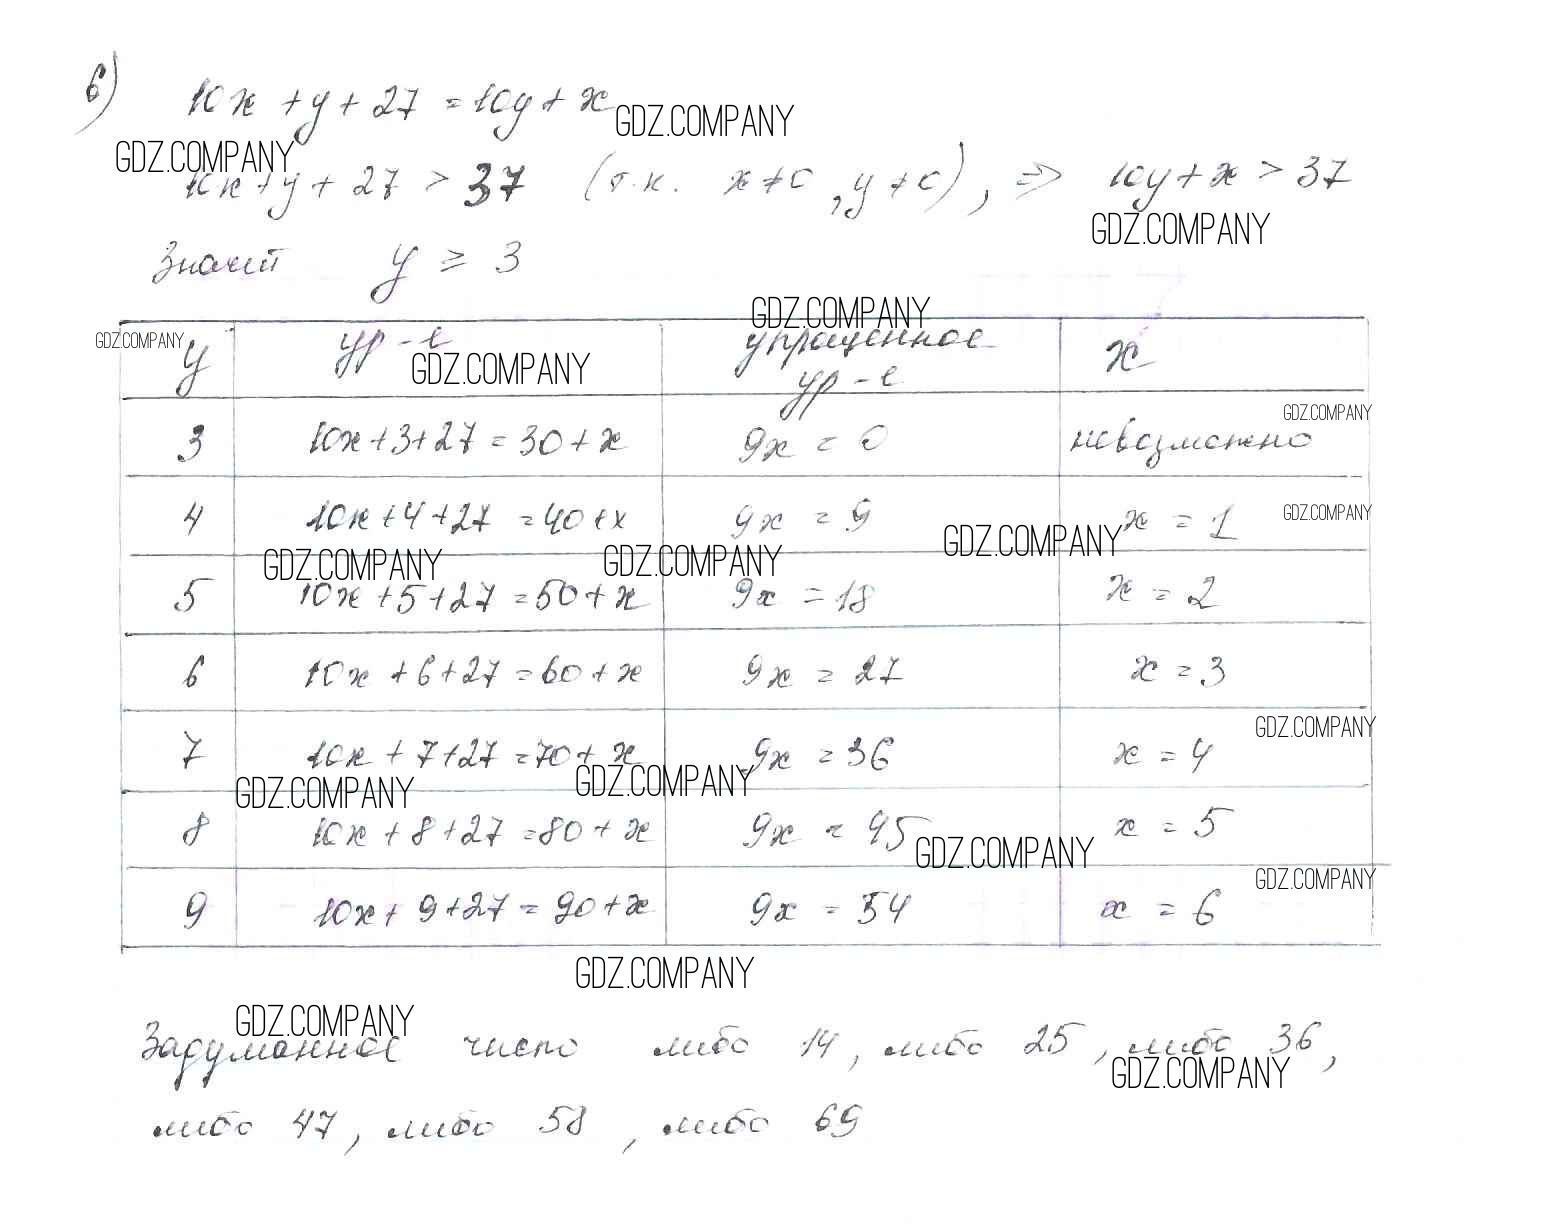 б) 10x + y + 27 = 10y + x GDZ.COMPANY
GDZ.COMPANY
10x + y + 27 > 37 (т.к. x ≠ 0, y ≠ 0), ⇒ 10y + x > 37
GDZ.COMPANY
Значит y ≥ 3
GDZ.COMPANY
GDZ.COMPANY
y ур-е упрощенное ур-е x
GDZ.COMPANY
GDZ.COMPANY
3 10x+3+27 = 30+x 9x = 0 невозможно
4 10x+4+27 = 40+x 9x = 9 x = 1
GDZ.COMPANY
GDZ.COMPANY GDZ.COMPANY GDZ.COMPANY
5 10x+5+27 = 50+x 9x = 18 x = 2
6 10x+6+27 = 60+x 9x = 27 x = 3
GDZ.COMPANY
7 10x+7+27 = 70+x 9x = 36 x = 4
GDZ.COMPANY GDZ.COMPANY
8 10x+8+27 = 80+x 9x = 45 x = 5
GDZ.COMPANY
GDZ.COMPANY
9 10x+9+27 = 90+x 9x = 54 x = 6
GDZ.COMPANY
GDZ.COMPANY
Задуманное число либо 14, либо 25, либо 36,
GDZ.COMPANY
либо 47, либо 58, либо 69